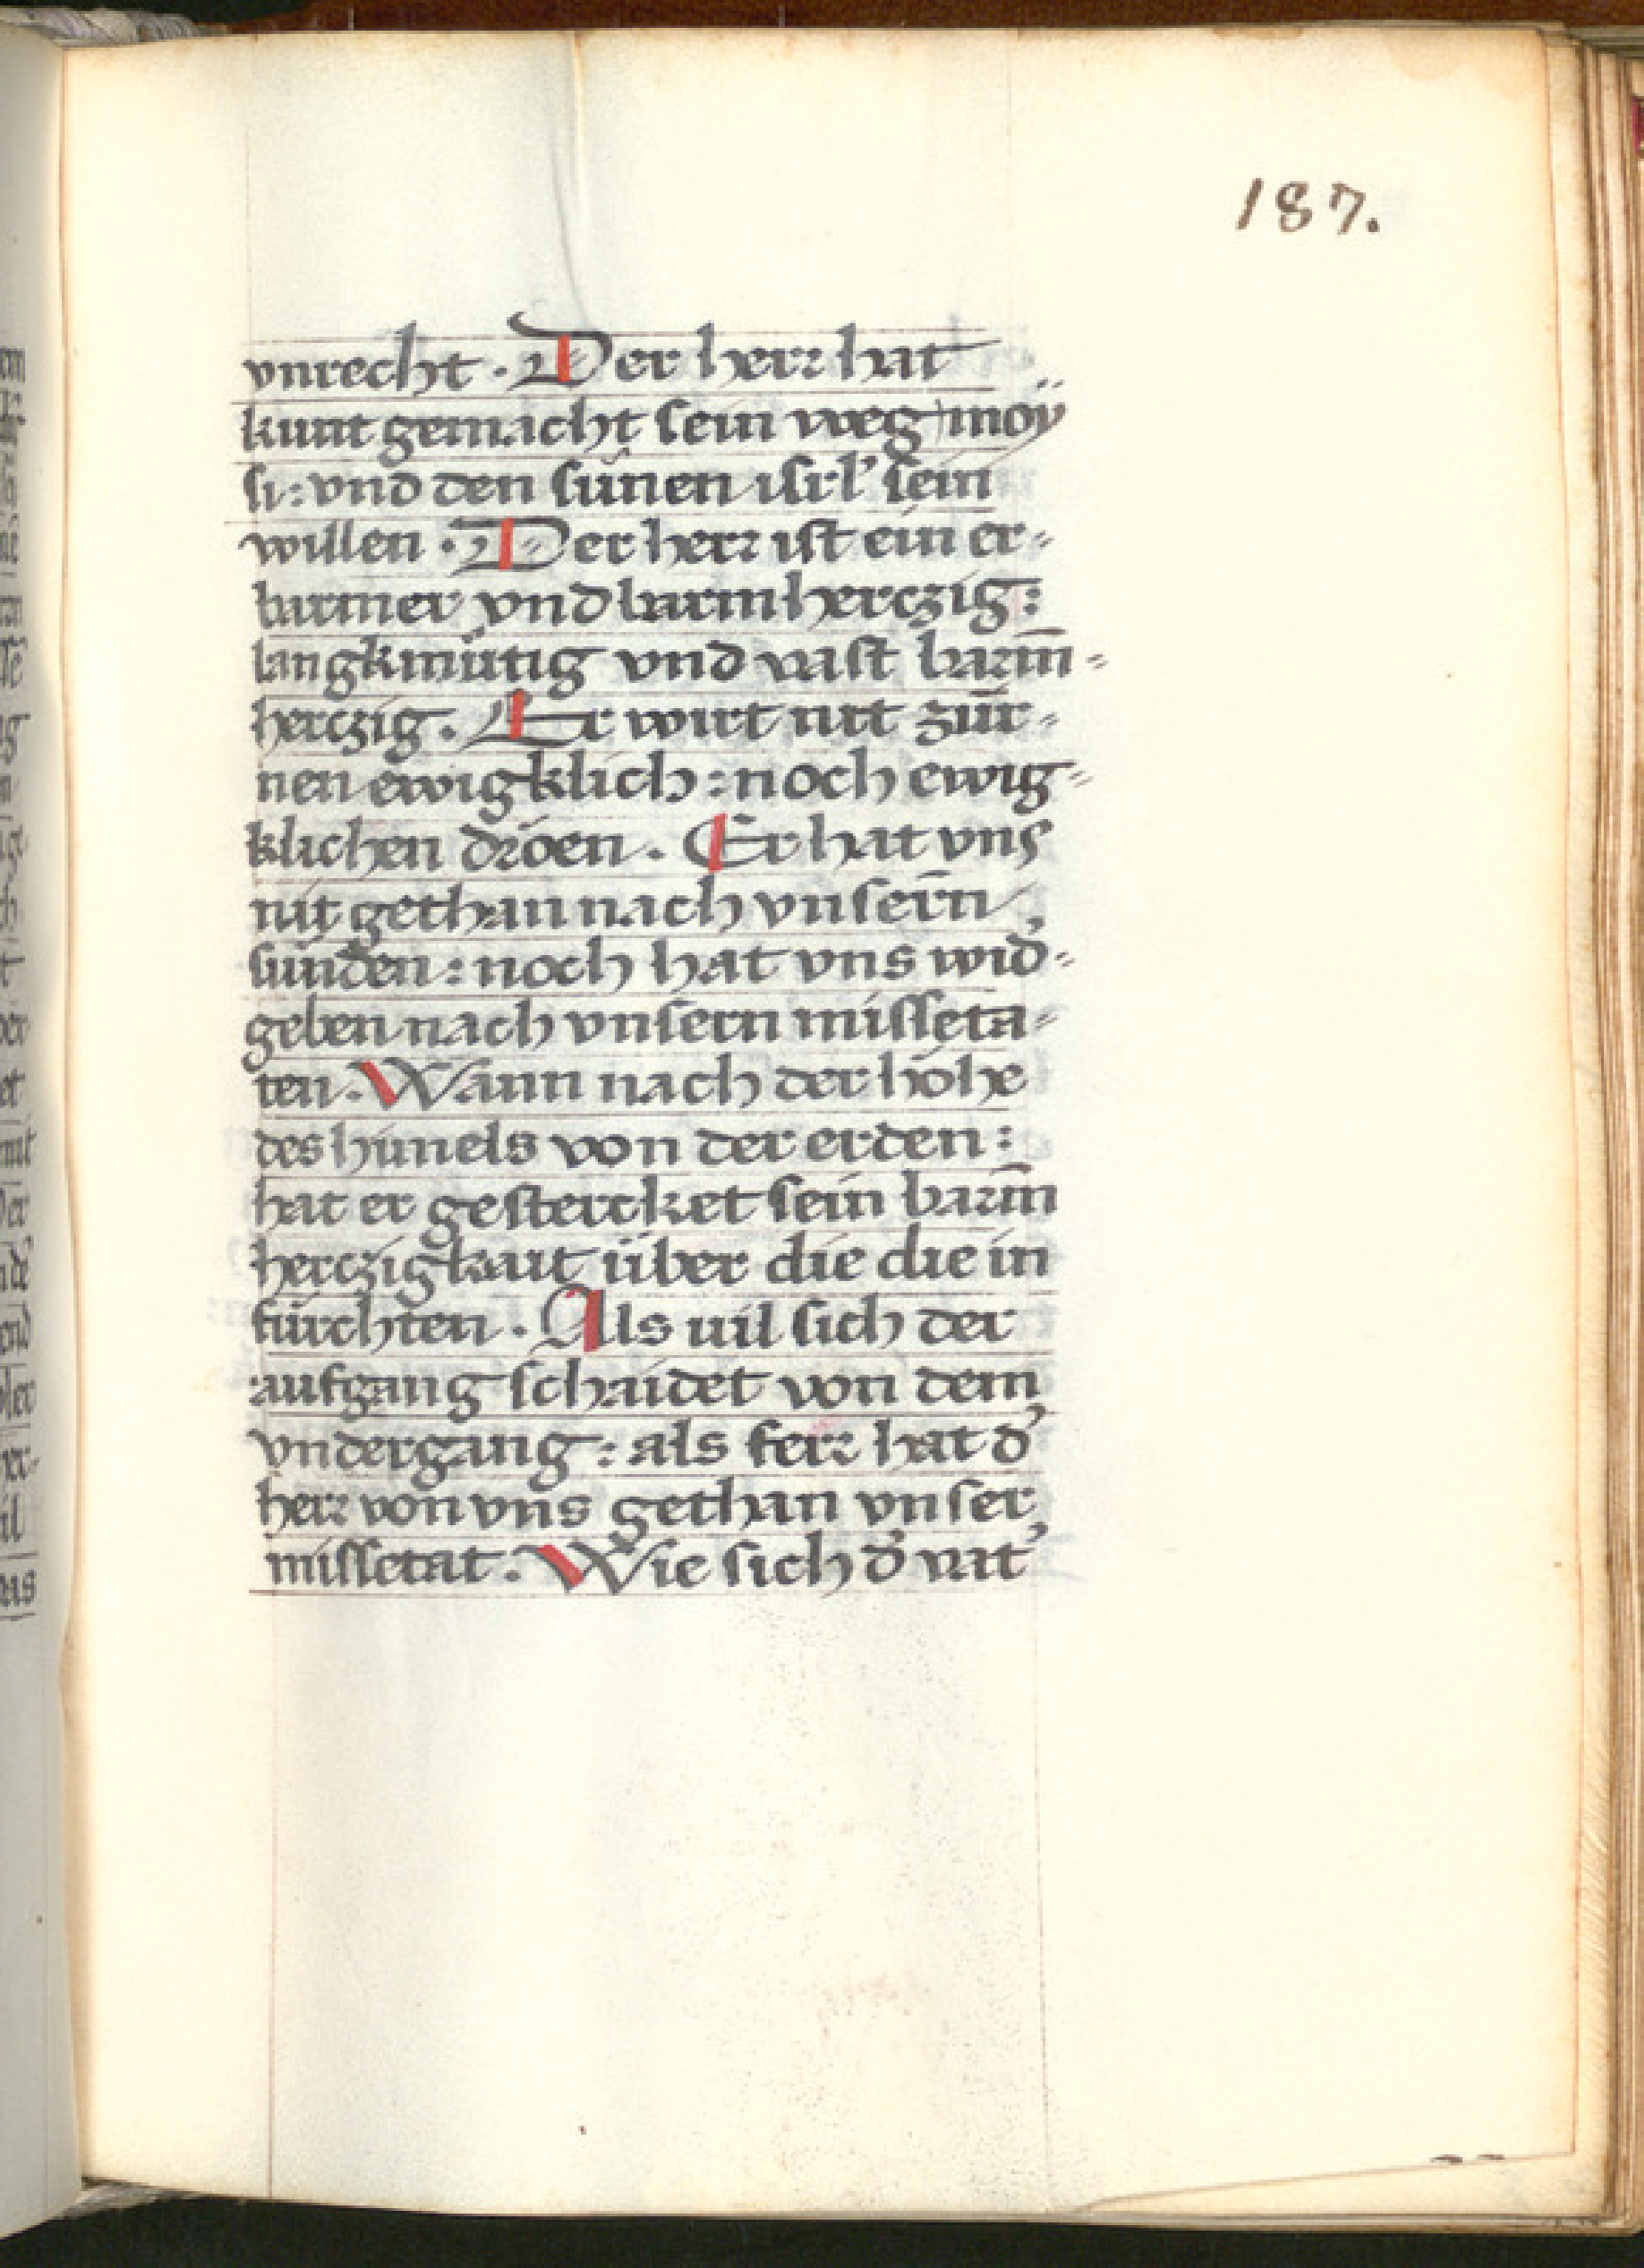 187.
vnrecht · Der herr hat
kunt gemacht sein weg moÿ
si: vnd den sünen isrl' sein
willen · Der herr ist ein er-
barmer vnd barmherczig:
langkmütig vnd vast barm̄-
herczig. Er wirt nit zür-
nen ewigklich: noch ewig-
klichen dröen. Er hat vns
nit gethan nach vnsern̄
sünden: noch hat vns wid'-
geben nach vnsern misseta-
ten. Wann nach der höhe
des himels von der erden:
hat er gestercket sein barm̄
herczigkait über die die in
fürchten. Als uil sich der
aufgang schaidet von dem
vndergang: als ferr hat d'
herr von vns gethan vnser
missetat. Wie sich d' uat'